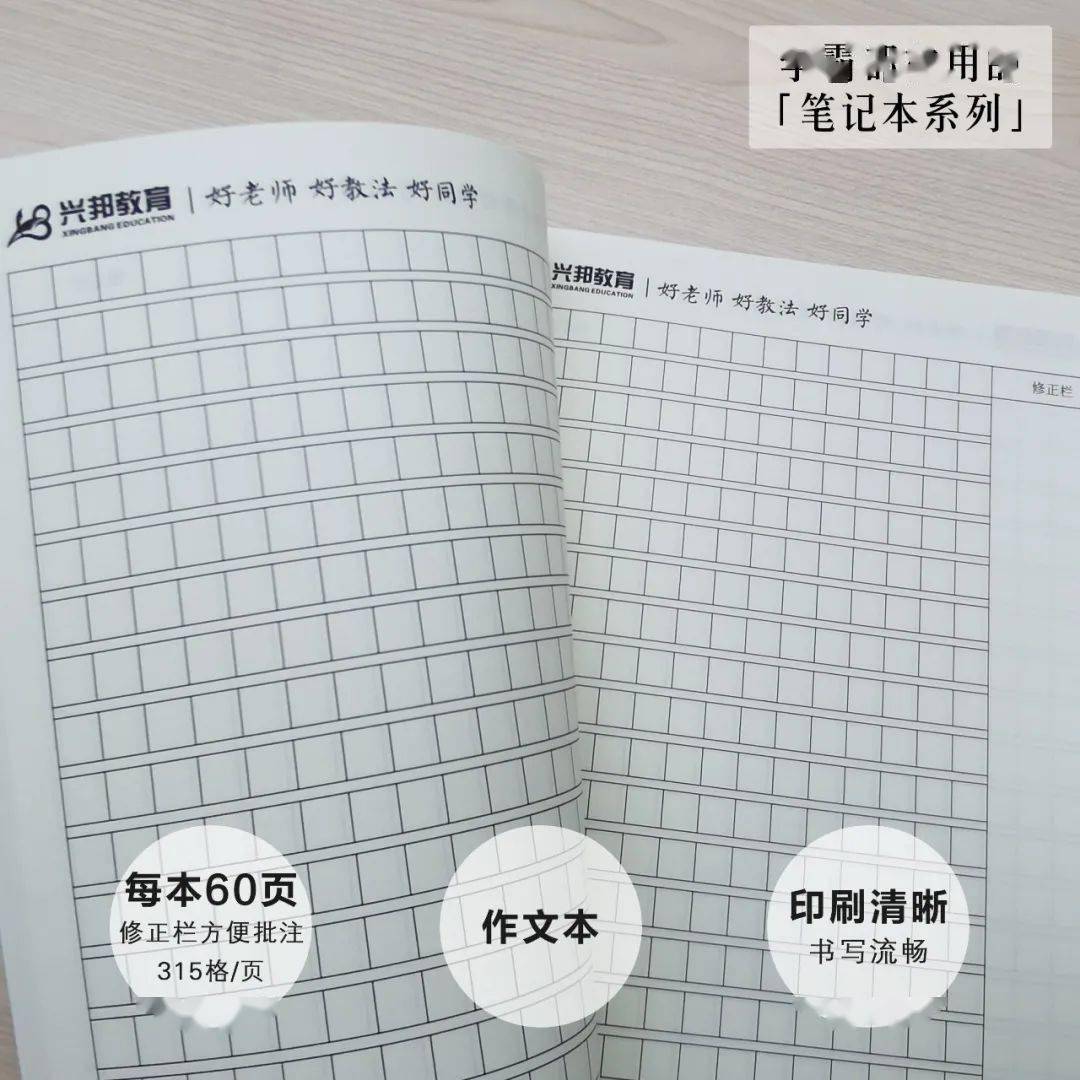 用
「笔记本系列」
兴邦教育 | 好老师 好教法 好同学
XINGBANG EDUCATION
兴邦教育 | 好老师 好教法 好同学
XINGBANG EDUCATION
修正栏
每本60页
修正栏方便批注
315格/页
作文本
印刷清晰
书写流畅